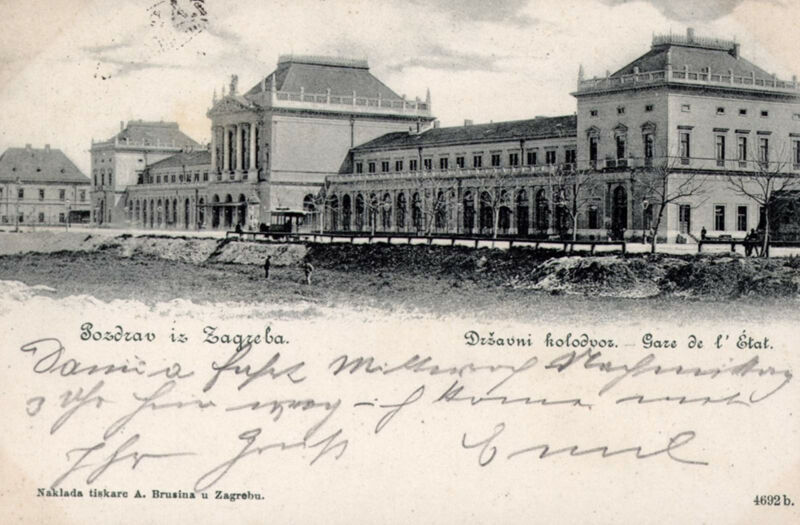 Pozdrav iz Zagreba.
Državni kolodvor. — Gare de l' État.
fahrt Mittwoch Nachmittag
3 Uhr hier weg – ich komme
Ihr Gruß Emil
Naklada tiskare A. Brusina u Zagrebu.
4692 b.